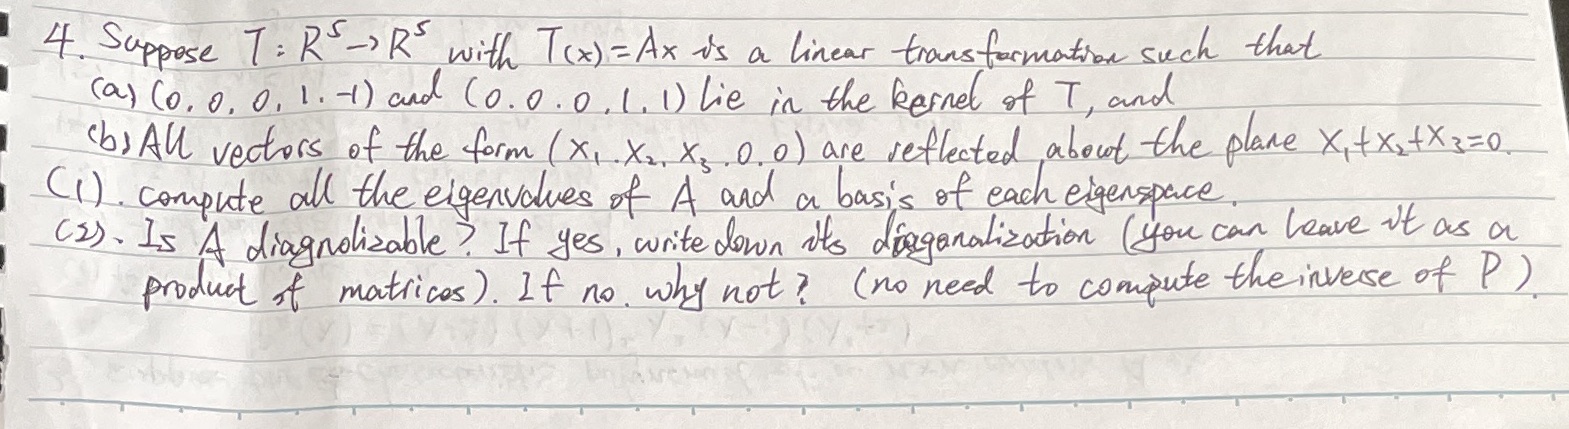 4. Suppose T: R⁵→R⁵ with T(x)=Ax is a linear transformation such that
(a) (0, 0, 0, 1. -1) and (0. 0. 0, 1. 1) lie in the kernel of T, and
(b) All vectors of the form (x₁. x₂. x₃. 0. 0) are reflected about the plane x₁+x₂+x₃=0.
(1). compute all the eigenvalues of A and a basis of each eigenspace.
(2). Is A diagnolizable? If yes, write down its diagonalization (you can leave it as a
product of matrices). If no. why not? (no need to compute the inverse of P).